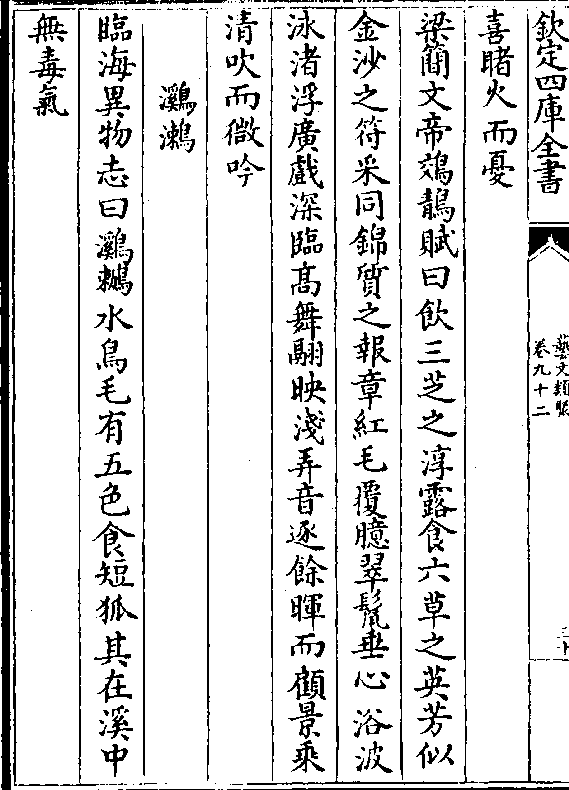 欽定四庫全書
藝文類聚
卷九十二
三十
喜睹火而憂
梁簡文帝鵁鶄賦曰飲三芝之淳露食六草之英芳似
金沙之符采同錦質之報章紅毛覆臆翠鬣垂心浴波
泳渚浮廣戲深臨高舞翮映淺弄音逐餘暉而顧景乘
清吹而微吟
鸂𪆟
臨海異物志曰鸂𪆟水鳥毛有五色食短狐其在溪中
無毒氣